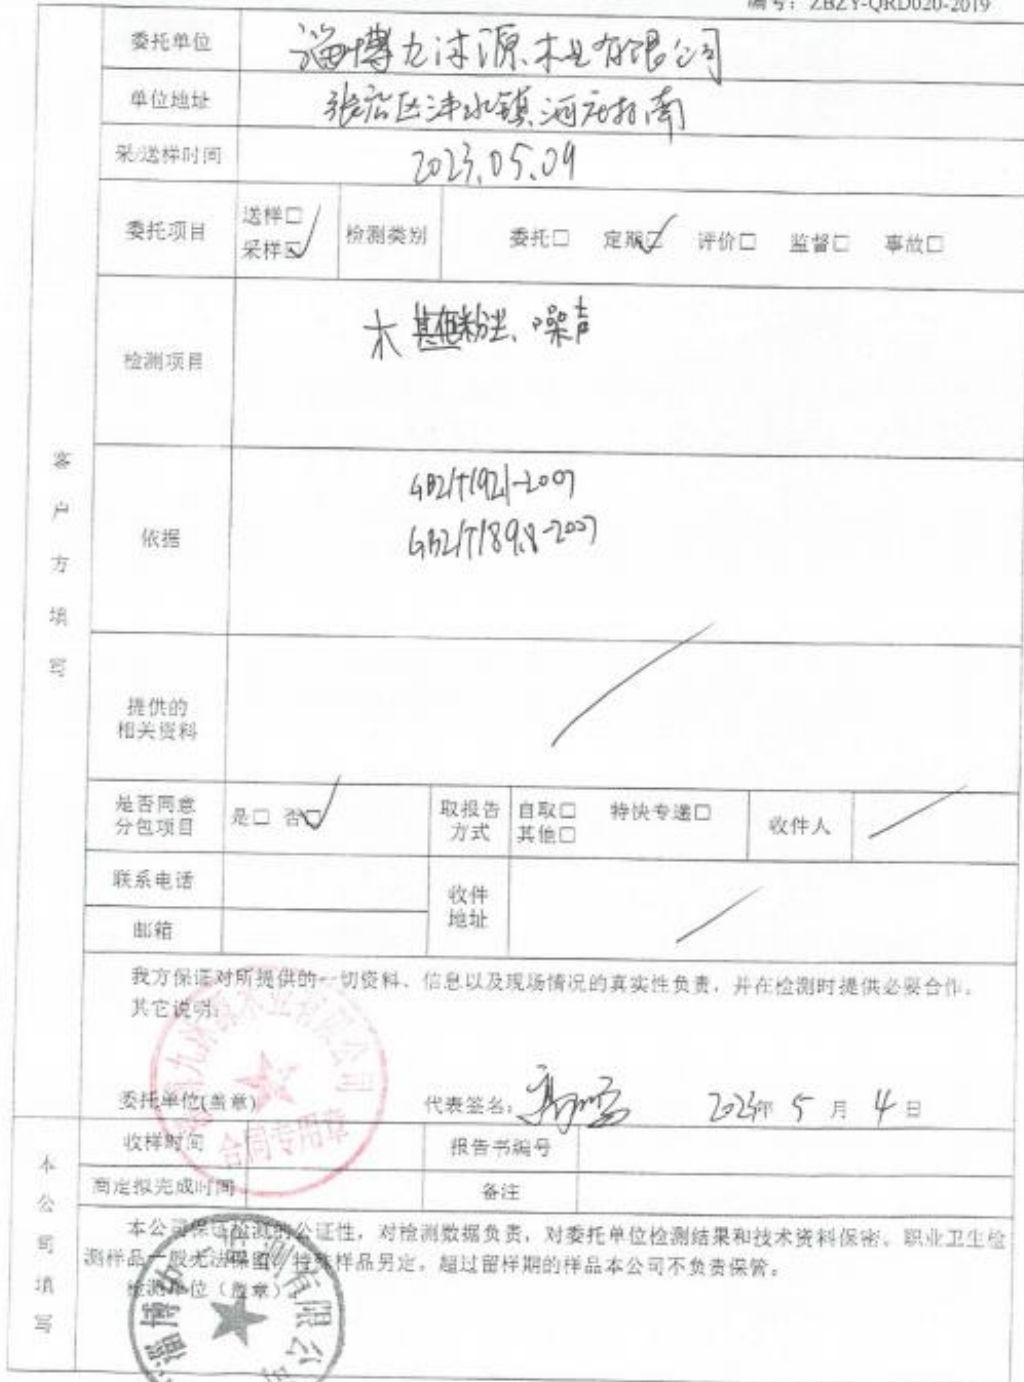 编号：ZBZY-QRD020-2019
委托单位 淄博九沐源木业有限公司
单位地址 张店区沣水镇河庄村南
采/送样时间 2023.05.09
委托项目 送样□ 采样☑ 检测类别 委托□ 定期☑ 评价□ 监督□ 事故□
检测项目 木 粉尘、噪声
客户方填写
依据 GBZ/T192.1-2007
GBZ/T189.8-2007
提供的
相关资料
是否同意
分包项目 是□ 否☑ 取报告
方式 自取□ 特快专递□
其他□ 收件人
联系电话
收件
地址
邮箱
我方保证对所提供的一切资料、信息以及现场情况的真实性负责，并在检测时提供必要合作。
其它说明：
委托单位(盖章) 代表签名： 2023年 5 月 4 日
合同专用章
本公司填写
收样时间 报告书编号
商定拟完成时间 备注
本公司保证检测的公证性，对检测数据负责，对委托单位检测结果和技术资料保密。职业卫生检
测样品一般无法保留，特殊样品另定，超过留样期的样品本公司不负责保管。
检测单位（盖章）
淄博 有限公